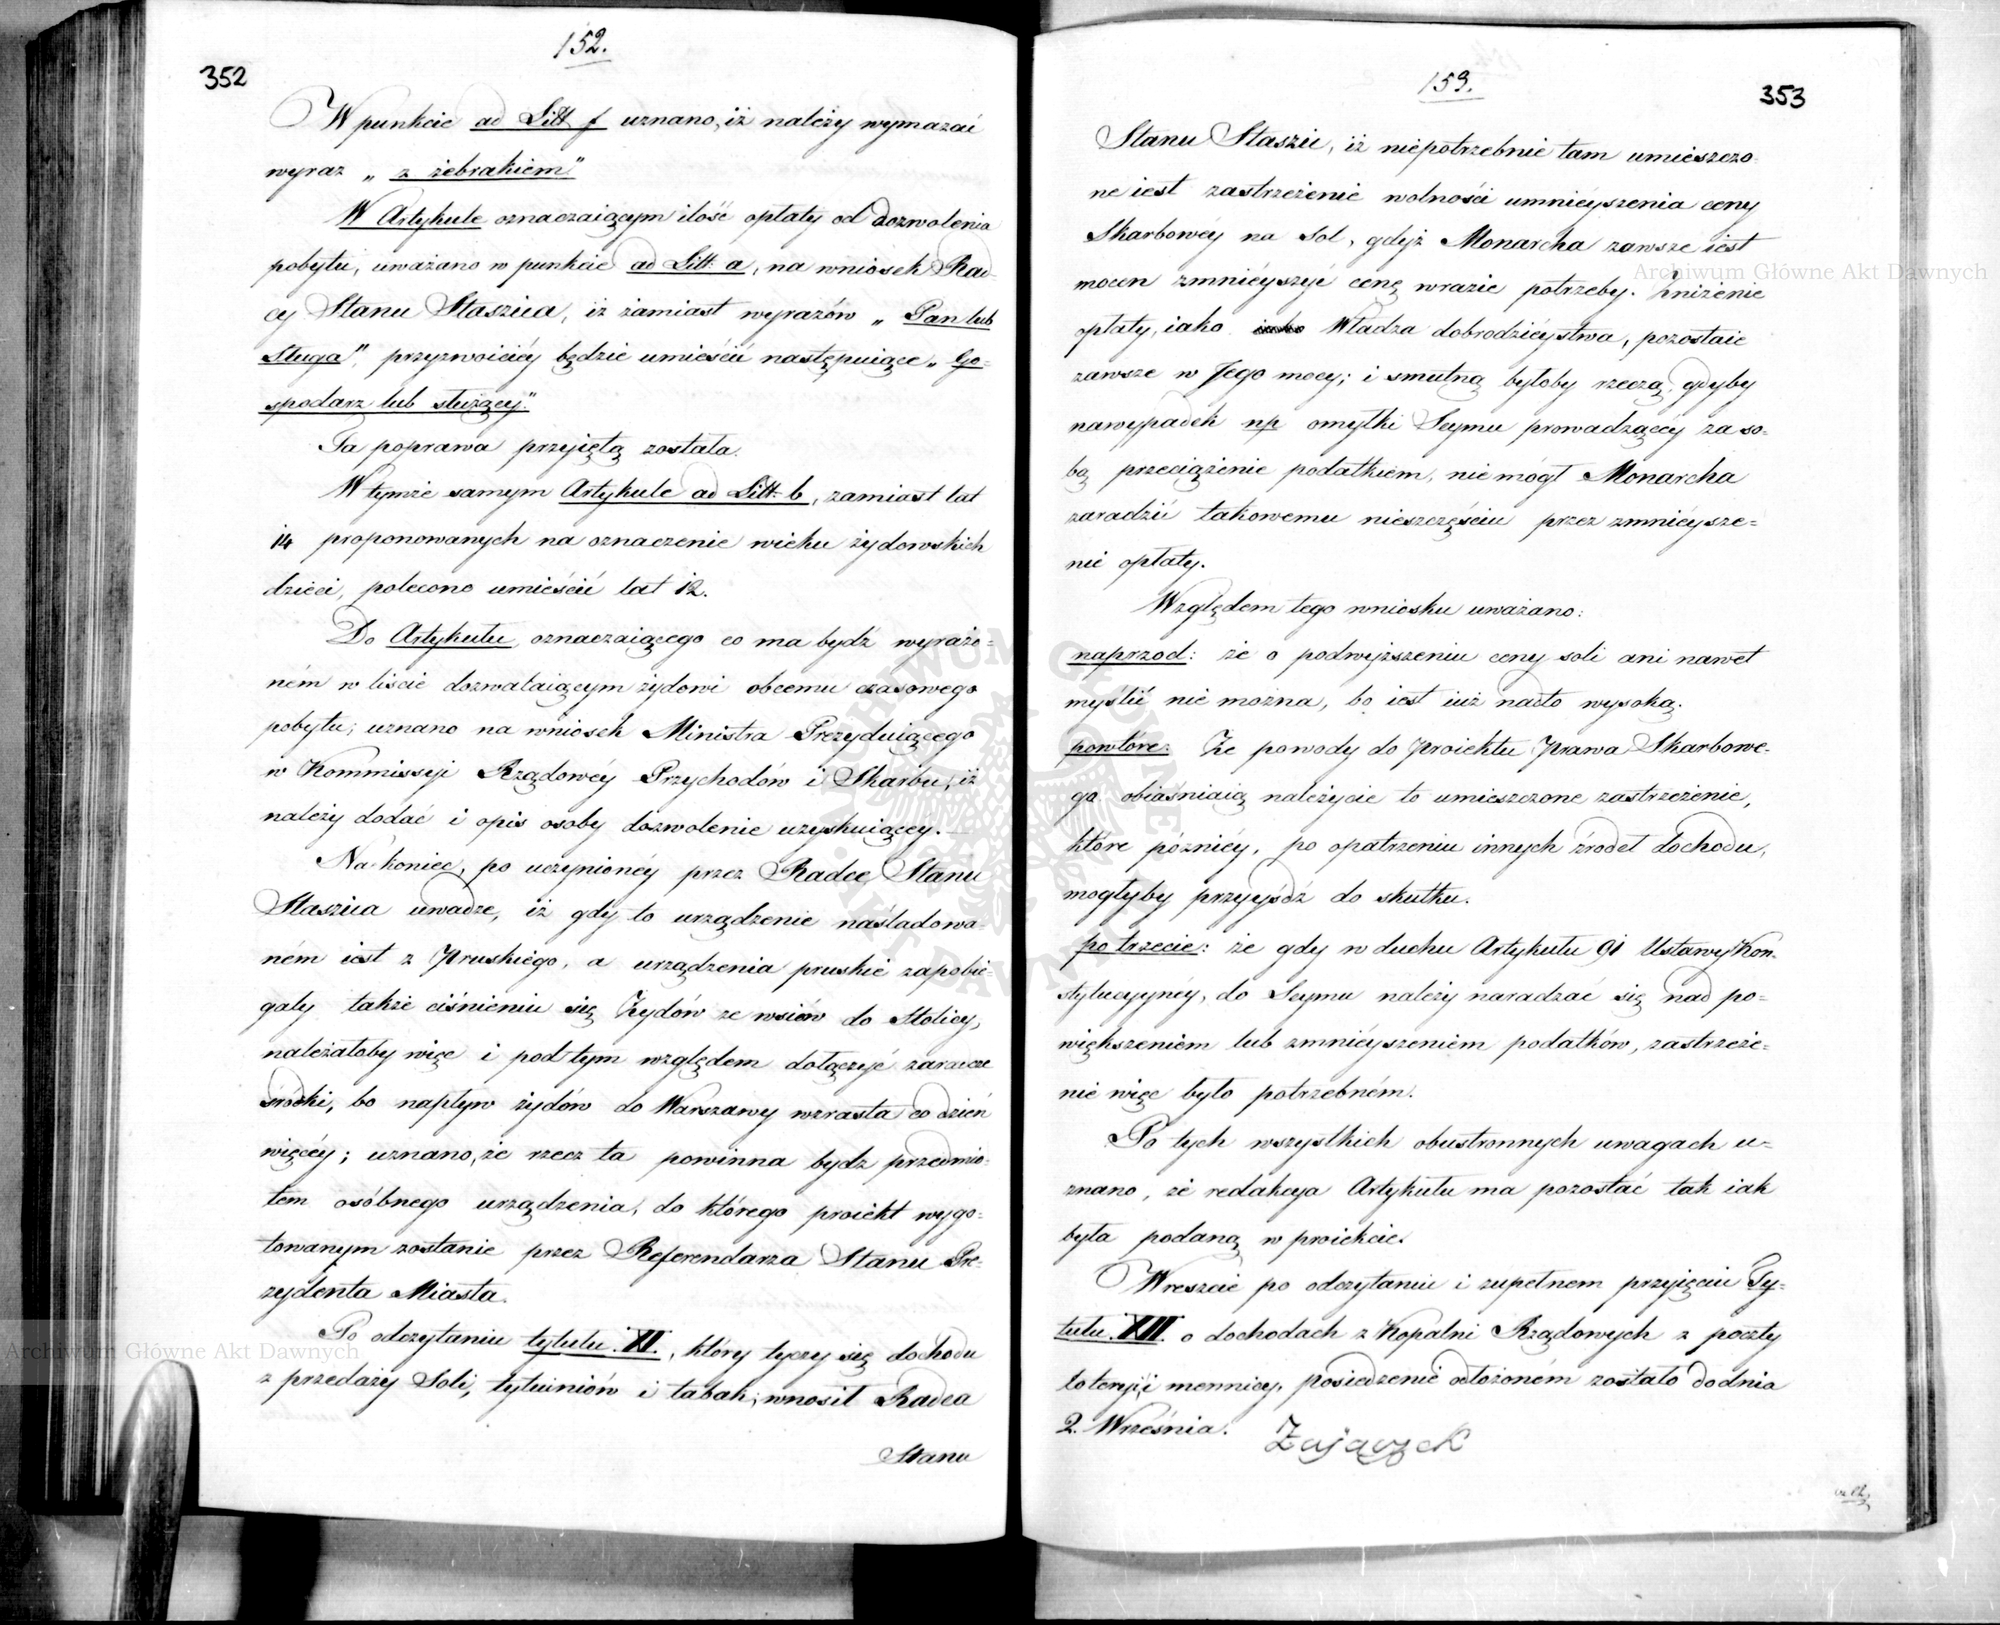 152.
352
W punkcie ad Litt f uznano, iż należy wymazać
wyraz „ z żebrakiem"
W Artykule oznaczaiącym ilość opłaty od dozwolenia
pobytu, uważano w punkcie ad Litt: a, na wniosek Rad-
cy Stanu Staszica, iż zamiast wyrazów „ Pan lub
Sługa", przyzwoiciéy będzie umieścić następuiące „ Go-
spodarz lub służący."
Ta poprawa przyiętą została.
W tymże samym Artykule ad Litt: b, zamiast lat
14 proponowanych na oznaczenie wieku żydowskich
dzieci, polecono umieścić lat 12.
Do Artykułu, oznaczaiącego co ma bydź wyrażo-
ném w liście dozwalaiącym żydowi obcemu czasowego
pobytu; uznano na wniosek Ministra Prezyduiącego
w Kommissyi Rządowéy Przychodów i Skarbu, iż
należy dodać i opis osoby dozwolenie uzyskuiącey.
Na koniec, po uczynionéy przez Radcę Stanu
Staszica uwadze, iż gdy to urządzenie naśladowa-
ném iest z Pruskiégo, a urządzenia pruskié zapobie-
gały także ciśnieniu się Żydów ze wsiów do Stolicy,
należałoby więc i pod tym względem dołączyć zaradcze
środki, bo napływ żydów do Warszawy wzrasta co dzień
więcéy; uznano, że rzecz ta powinna bydz przedmio-
tem osóbnego urządzenia, do którego proiekt wygo-
towanym zostanie przez Referendarza Stanu Pre-
zydenta Miasta.
Po odczytaniu tytułu XI., który tyczy się dochodu
z przedaży Soli, tytuniów i tabak; wnosił Radca
Stanu
153.
353
Stanu Staszic, iż niepotrzebnie tam umieszczo-
ne iest zastrzeżenie wolności umnieyszenia ceny
Skarbowéy na Sol, gdyż Monarcha zawsze iest
mocen zmnieyszyć cenę w razie potrzeby. Zniżenie
opłaty, iako Władza dobrodzieystwa, pozostaie
zawsze w Jego mocy; i smutną byłoby rzeczą, gdyby
nawypadek np omyłki Seymu prowadzącéy za so-
bą przeciążenie podatkiem, nie mógł Monarcha
zaradzić takowemu nieszczęściu przez zmnieysze-
nie opłaty.
Względem tego wniosku uważano:
naprzod: że o podwyższeniu ceny soli ani nawet
myślić nie można, bo iest iuż nadto wysoką.
powtóre: Że powody do Proiektu Prawa Skarbowe-
go obiaśniaią należycie to umieszczone zastrzeżenie,
które późniéy, po opatrzeniu innych źrodeł dochodu,
mogłyby przyyśdź do skutku.
po trzecie: że gdy w duchu Artykułu 91 Ustawy Kon-
stytucyynéy, do Seymu należy naradzać się nad po-
większeniem lub zmnieyszeniem podatków, zastrzeże-
nie więc było potrzebném.
Po tych wszystkich obustronnych uwagach u-
znano, że redakcya Artykułu ma pozostać tak iak
była podaną w proiekcie.
Wreszcie po odczytaniu i zupełnem przyięciu Ty-
tułu XII. o dochodach z Kopalni Rządowych z poczty
loteryi, i mennicy, posiedzenié odłożoném zostało do dnia
2. Września. Zajączek
Archiwum Główne Akt Dawnych
Archiwum Główne Akt Dawnych